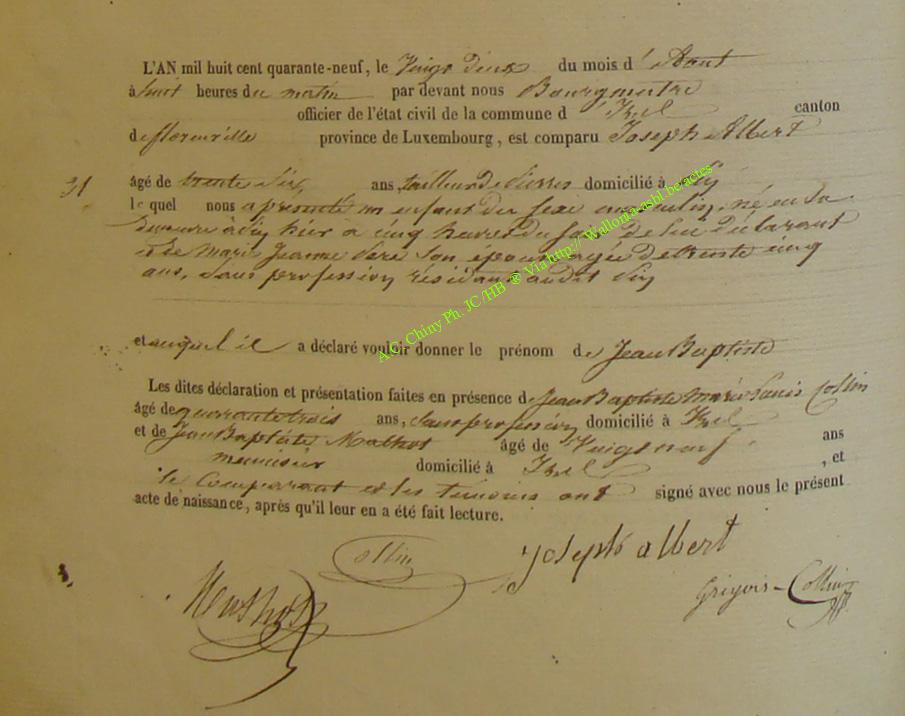 L'AN mil huit cent quarante-neuf, le Vingt deux du mois d'Aout
à huit heures du matin par devant nous Bourgmestre
officier de l'état civil de la commune d'Izel canton
de florenville province de Luxembourg, est comparu Joseph Albert
31 âgé de trente Six ans, tailleur de pierres domicilié à
le quel nous a presenté un enfant du sexe masculin, né en sa
demeure à hier a cinq heures du soir de lui déclarant
et de Marie Jeanne son épouse agée de trente cinq
ans, Sans profession résidant audit
et auquel il a déclaré vouloir donner le prénom de Jean Baptiste
Les dites déclaration et présentation faites en présence de Jean Baptiste Marie Louis Collin
âgé de quarante trois ans, Sans profession domicilié à Izel
et de Jean Baptiste Mathot âgé de Vingt neuf ans
menuisier domicilié à Izel , et
le Comparant et les témoins ont signé avec nous le présent
acte de naissance, après qu'il leur en a été fait lecture.
Collin Joseph albert
Collin
A.C. Chiny Ph. JC/HB ® Via http://Wallonia-asbl.be/actes